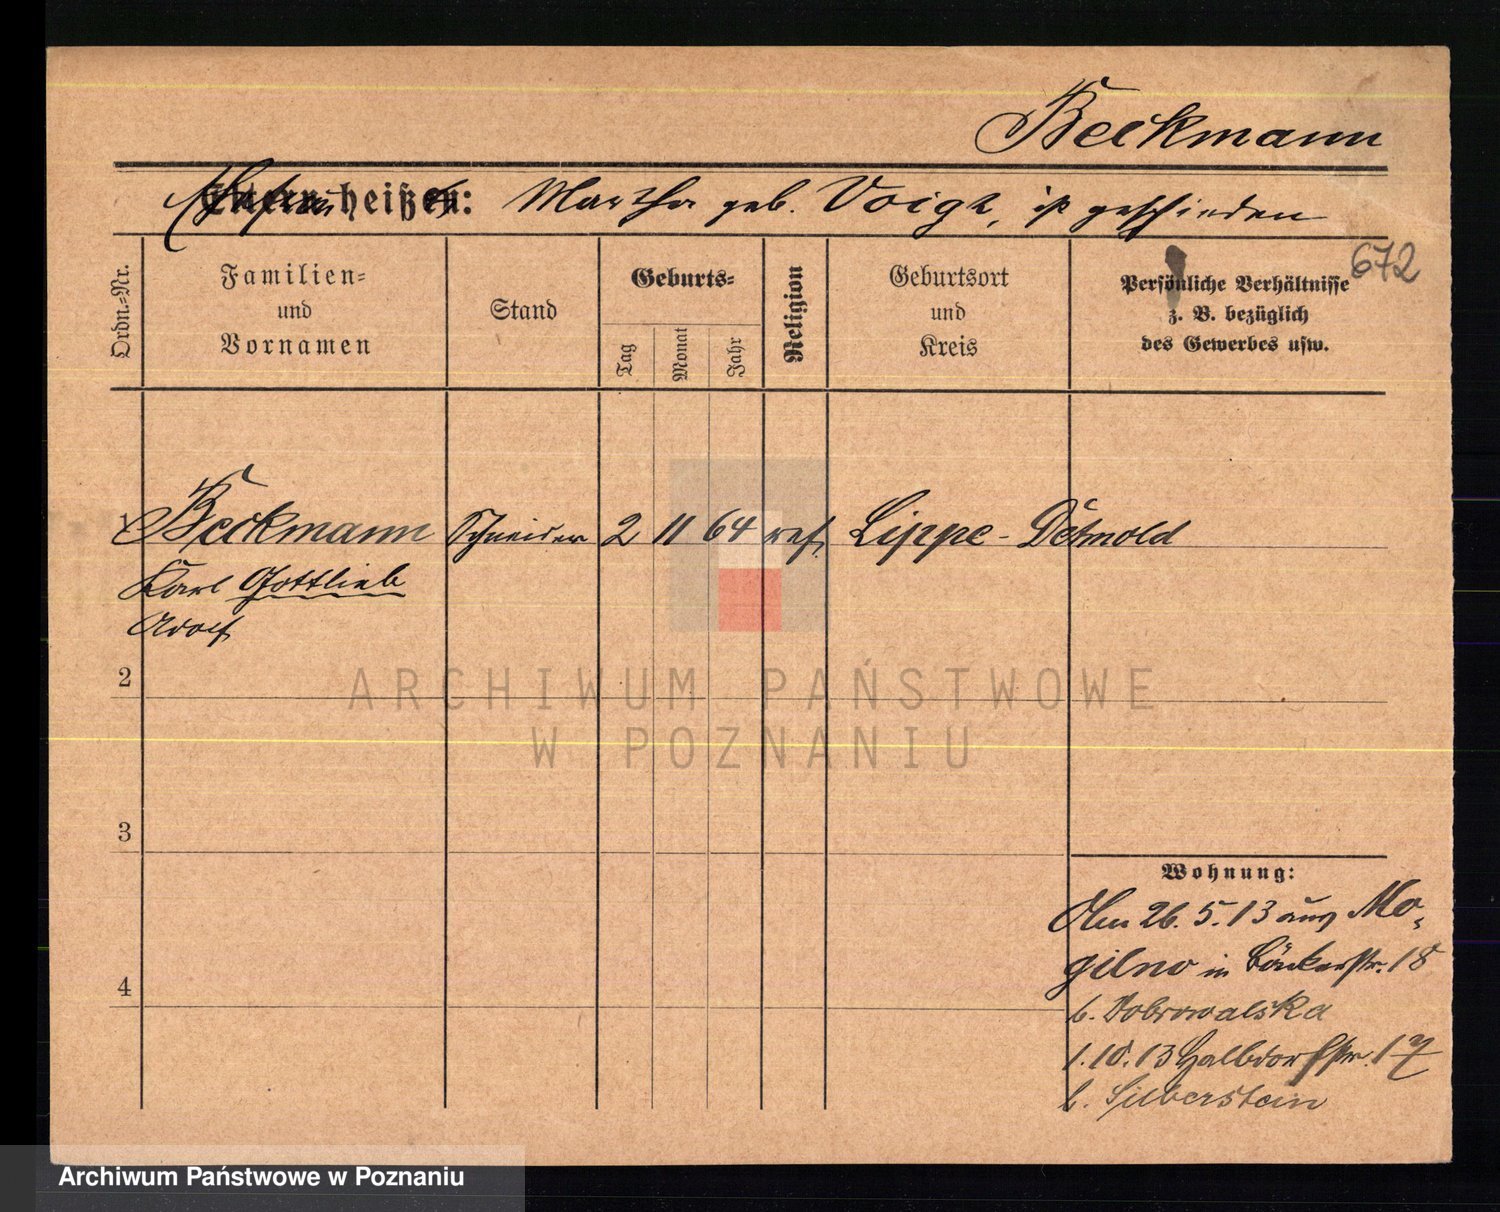 Beckmann
Ehefrau heißt: Martha geb. Voigt, ist geschieden
672
Ordn.-Nr.
Familien-
und
Vornamen
Stand
Geburts-
Tag
Monat
Jahr
Religion
Geburtsort
und
Kreis
Persönliche Verhältnisse
z. B. bezüglich
des Gewerbes usw.
1 Beckmann Schneider 2 11 64 ref. Lippe-Detmold
Karl Gottlieb
Adolf
2
ARCHIWUM PAŃSTWOWE
W POZNANIU
3
Wohnung:
Am 26.5.13 aus Mo-
gilno in Bäckerstr. 18
4
b. Dobrowalska
1.10.13 Halbdorfstr. 17
b. Silberstein
Archiwum Państwowe w Poznaniu